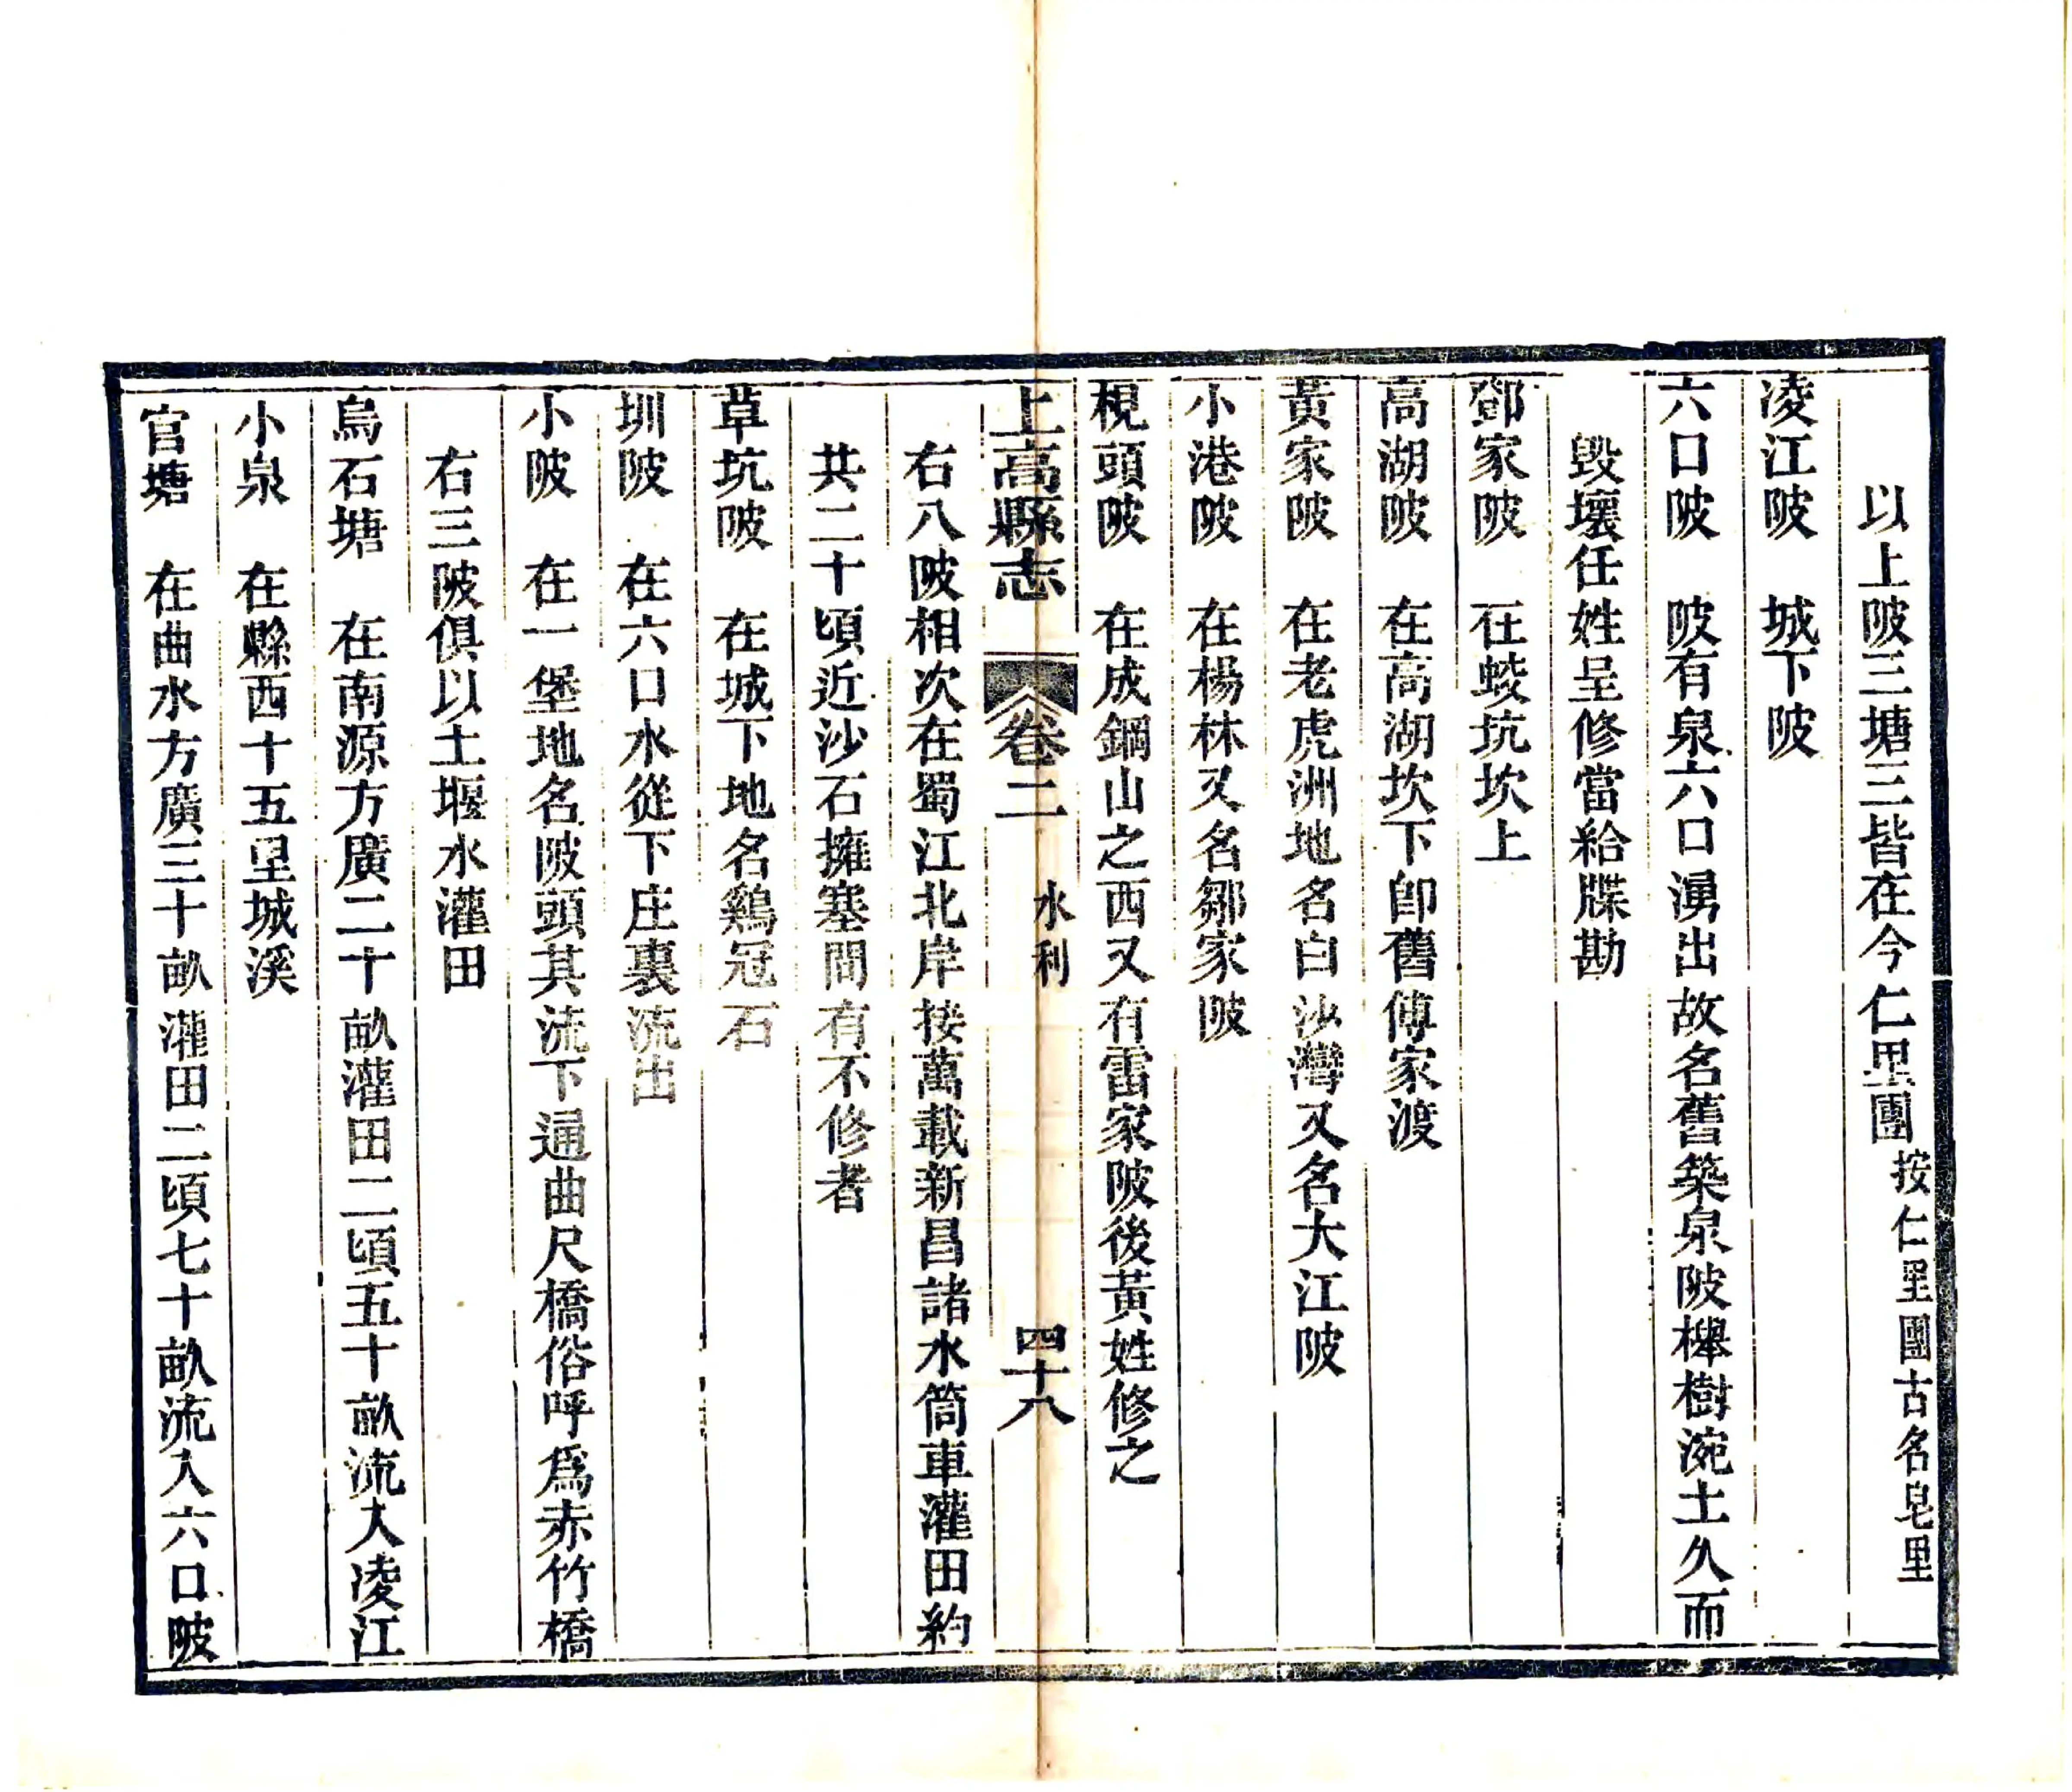 以上陂三塘三皆在今仁里團按仁里團古名皂里
凌江陂　城下陂
六口陂　陂有泉六口湧出故名舊築泉陂櫸樹涴土久而
毀壞任姓呈修當給牒勘
鄧家陂　在蛟坑坎上
高湖陂　在高湖坎下卽舊傅家渡
黃家陂　在老虎洲地名白沙灣又名大江陂
小港陂　在楊林又名鄒家陂
梘頭陂　在成鋼山之西又有雷家陂後黃姓修之
上高縣志　卷二　水利　四十八
右八陂相次在蜀江北岸接萬載新昌諸水筒車灌田約
共二十頃近沙石擁塞間有不修者
草坑陂　在城下地名鷄冠石
圳陂　在六口水從下庄裏流出
小陂　在一堡地名陂頭其流下通曲尺橋俗呼爲赤竹橋
右三陂俱以土堰水灌田
烏石塘　在南源方廣二十畝灌田二頃五十畝流入凌江
小泉　在縣西十五里城溪
官塘　在曲水方廣三十畝灌田二頃七十畝流入六口陂